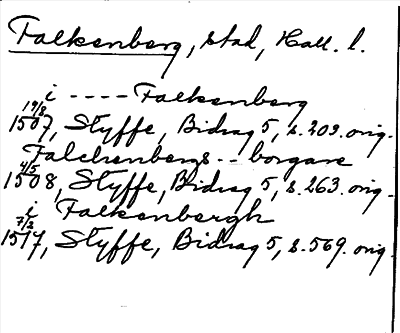 Falkenberg, stad, Hall. l.
i ---- Falkenberg
19/8
1507, Styffe, Bidrag 5, s. 209. orig.
Falchenbergs -- borgare
4/5
1508, Styffe, Bidrag 5, s. 263. orig.
i Falkenbergh
7/2
1517, Styffe, Bidrag 5, s. 569. orig.